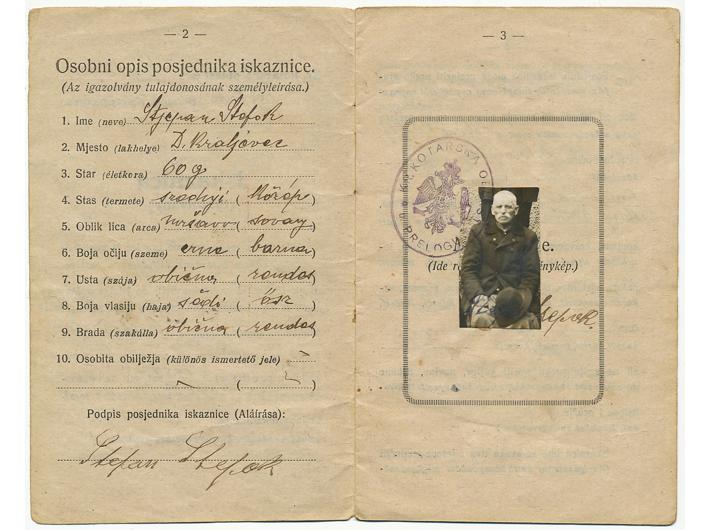 — 2 —
Osobni opis posjednika iskaznice.
(Az igazolvány tulajdonosának személyleirása.)
1. Ime (neve) Stjepan Štefok
2. Mjesto (lakhelye) D. Kraljevec
3. Star (életkora) 60 g
4. Stas (termete) srednji ( közép )
5. Oblik lica (arca) mršavo ( sovány )
6. Boja očiju (szeme) crne ( barna )
7. Usta (szája) obična ( rendes )
8. Boja vlasiju (haja) sjedi ( ősz )
9. Brada (szakálla) obična ( rendes )
10. Osobita obilježja (különös ismertető jele) —
— ( — )
Podpis posjednika iskaznice (Aláírása):
Stefan Stefok
— 3 —
KOTARSKA
PRELOG
(Ide
nykép.)